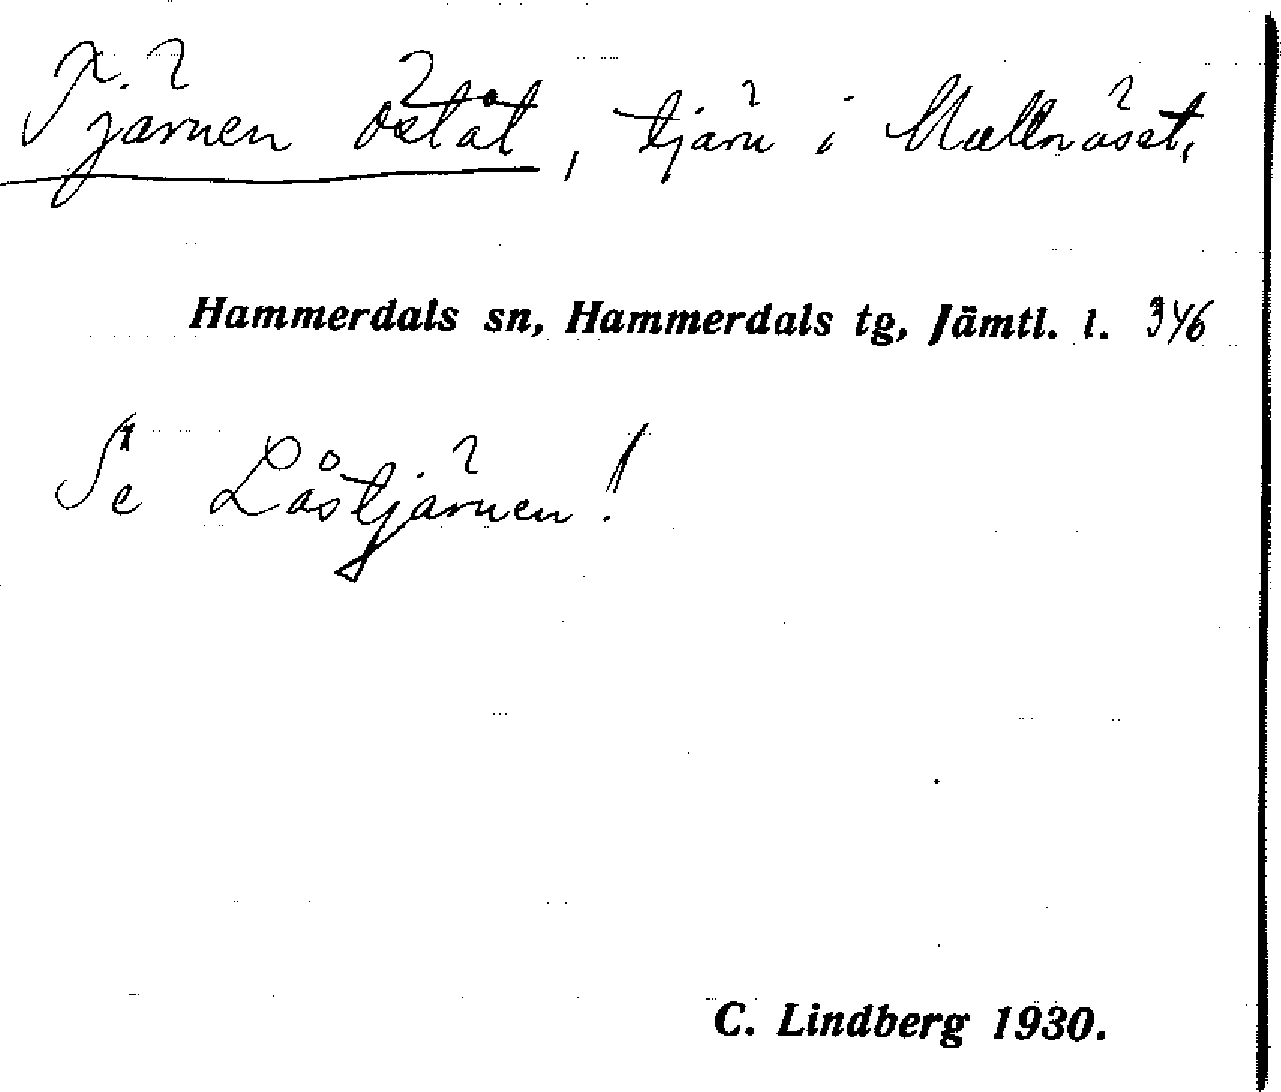 Tjärnen öståt, tjärn i Mellnäset.
Hammerdals sn, Hammerdals tg, Jämtl. l. 346
Se Låstjärnen!
C. Lindberg 1930.